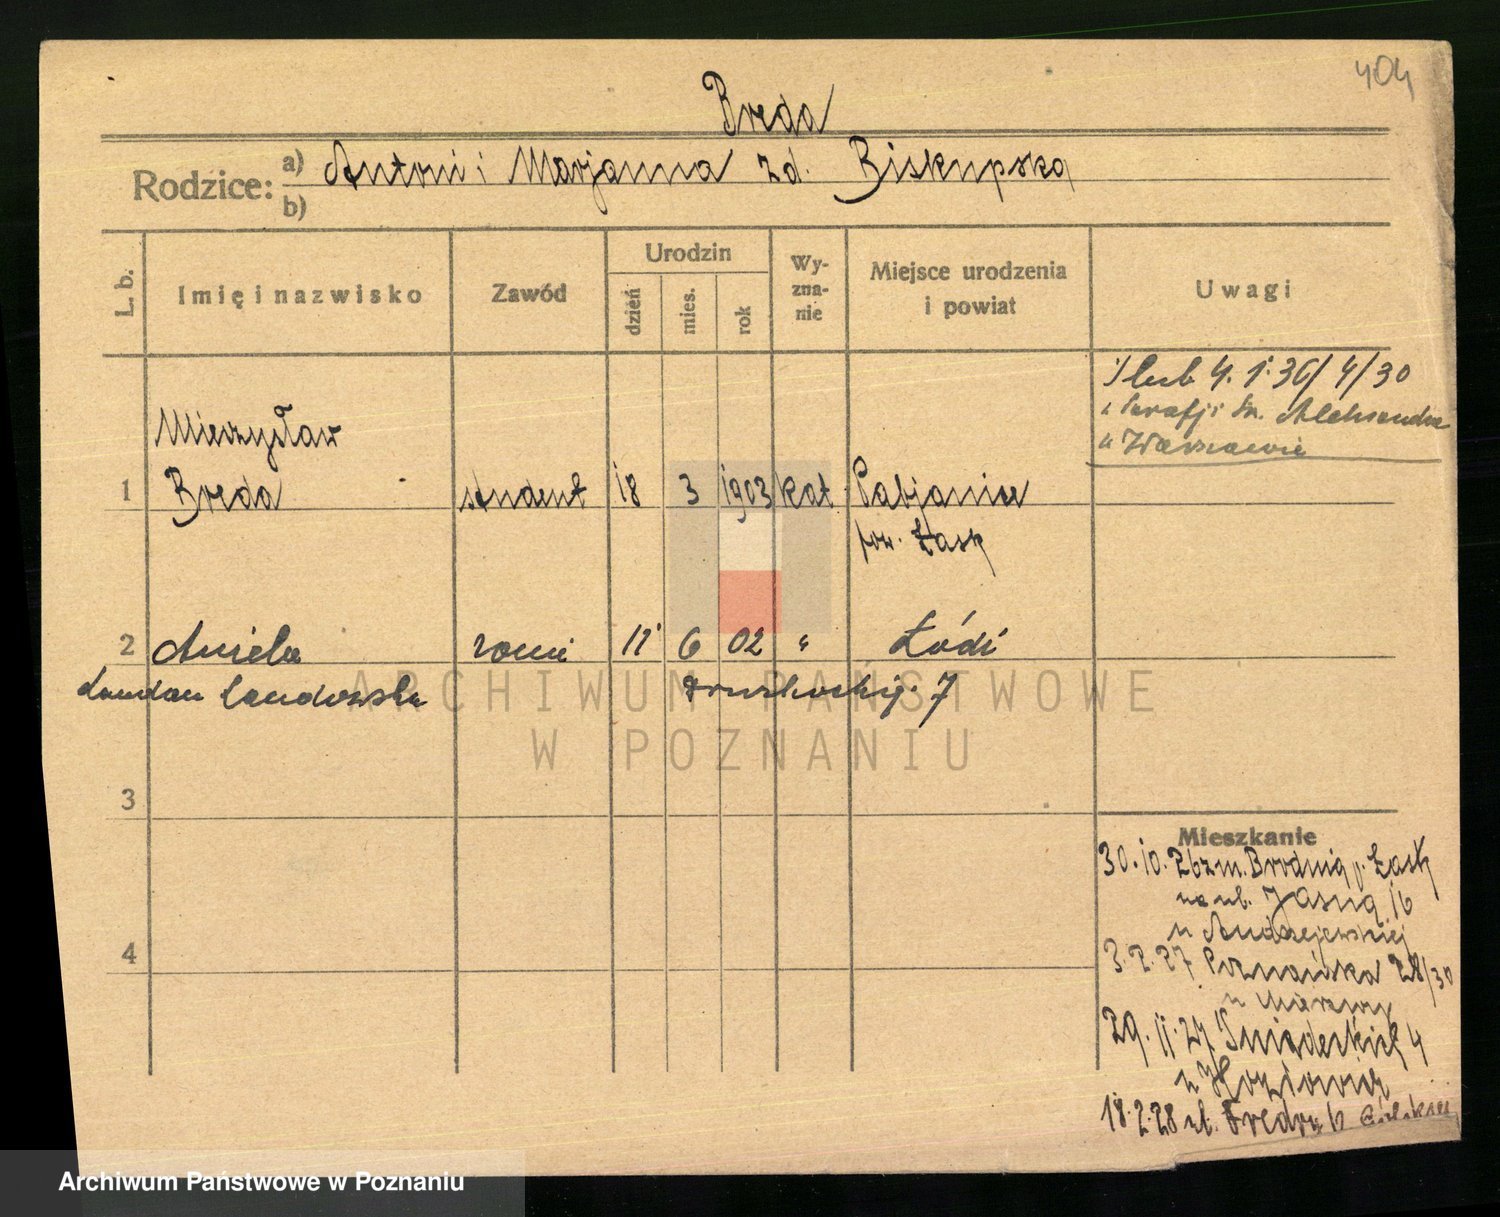 404
Breda
Rodzice: a) Antoni i Marjanna zd. Biskupska
b)
L. b.
Imię i nazwisko
Zawód
Urodzin
dzień
mies.
rok
Wy-
zna-
nie
Miejsce urodzenia
i powiat
Uwagi
4/30
Aleksandra
w Warszawie
Mieczysław
1 Breda student 18 3 1903 kat Pabjanice
pow. Łask
2 Aniela 11 6 02 " Łódź
Landowska 7
ARCHIWUM PAŃSTWOWE
W POZNANIU
3
Mieszkanie
30.10.26 z m. Brodnia p. Łask
na ul. Jasną 16
u Andrzejewskiej
4
3.2.27 Poznańska 28/30
u
29.11.27 Śniadeckich 4
u
18.2.28 ul. Fredry 12
Archiwum Państwowe w Poznaniu